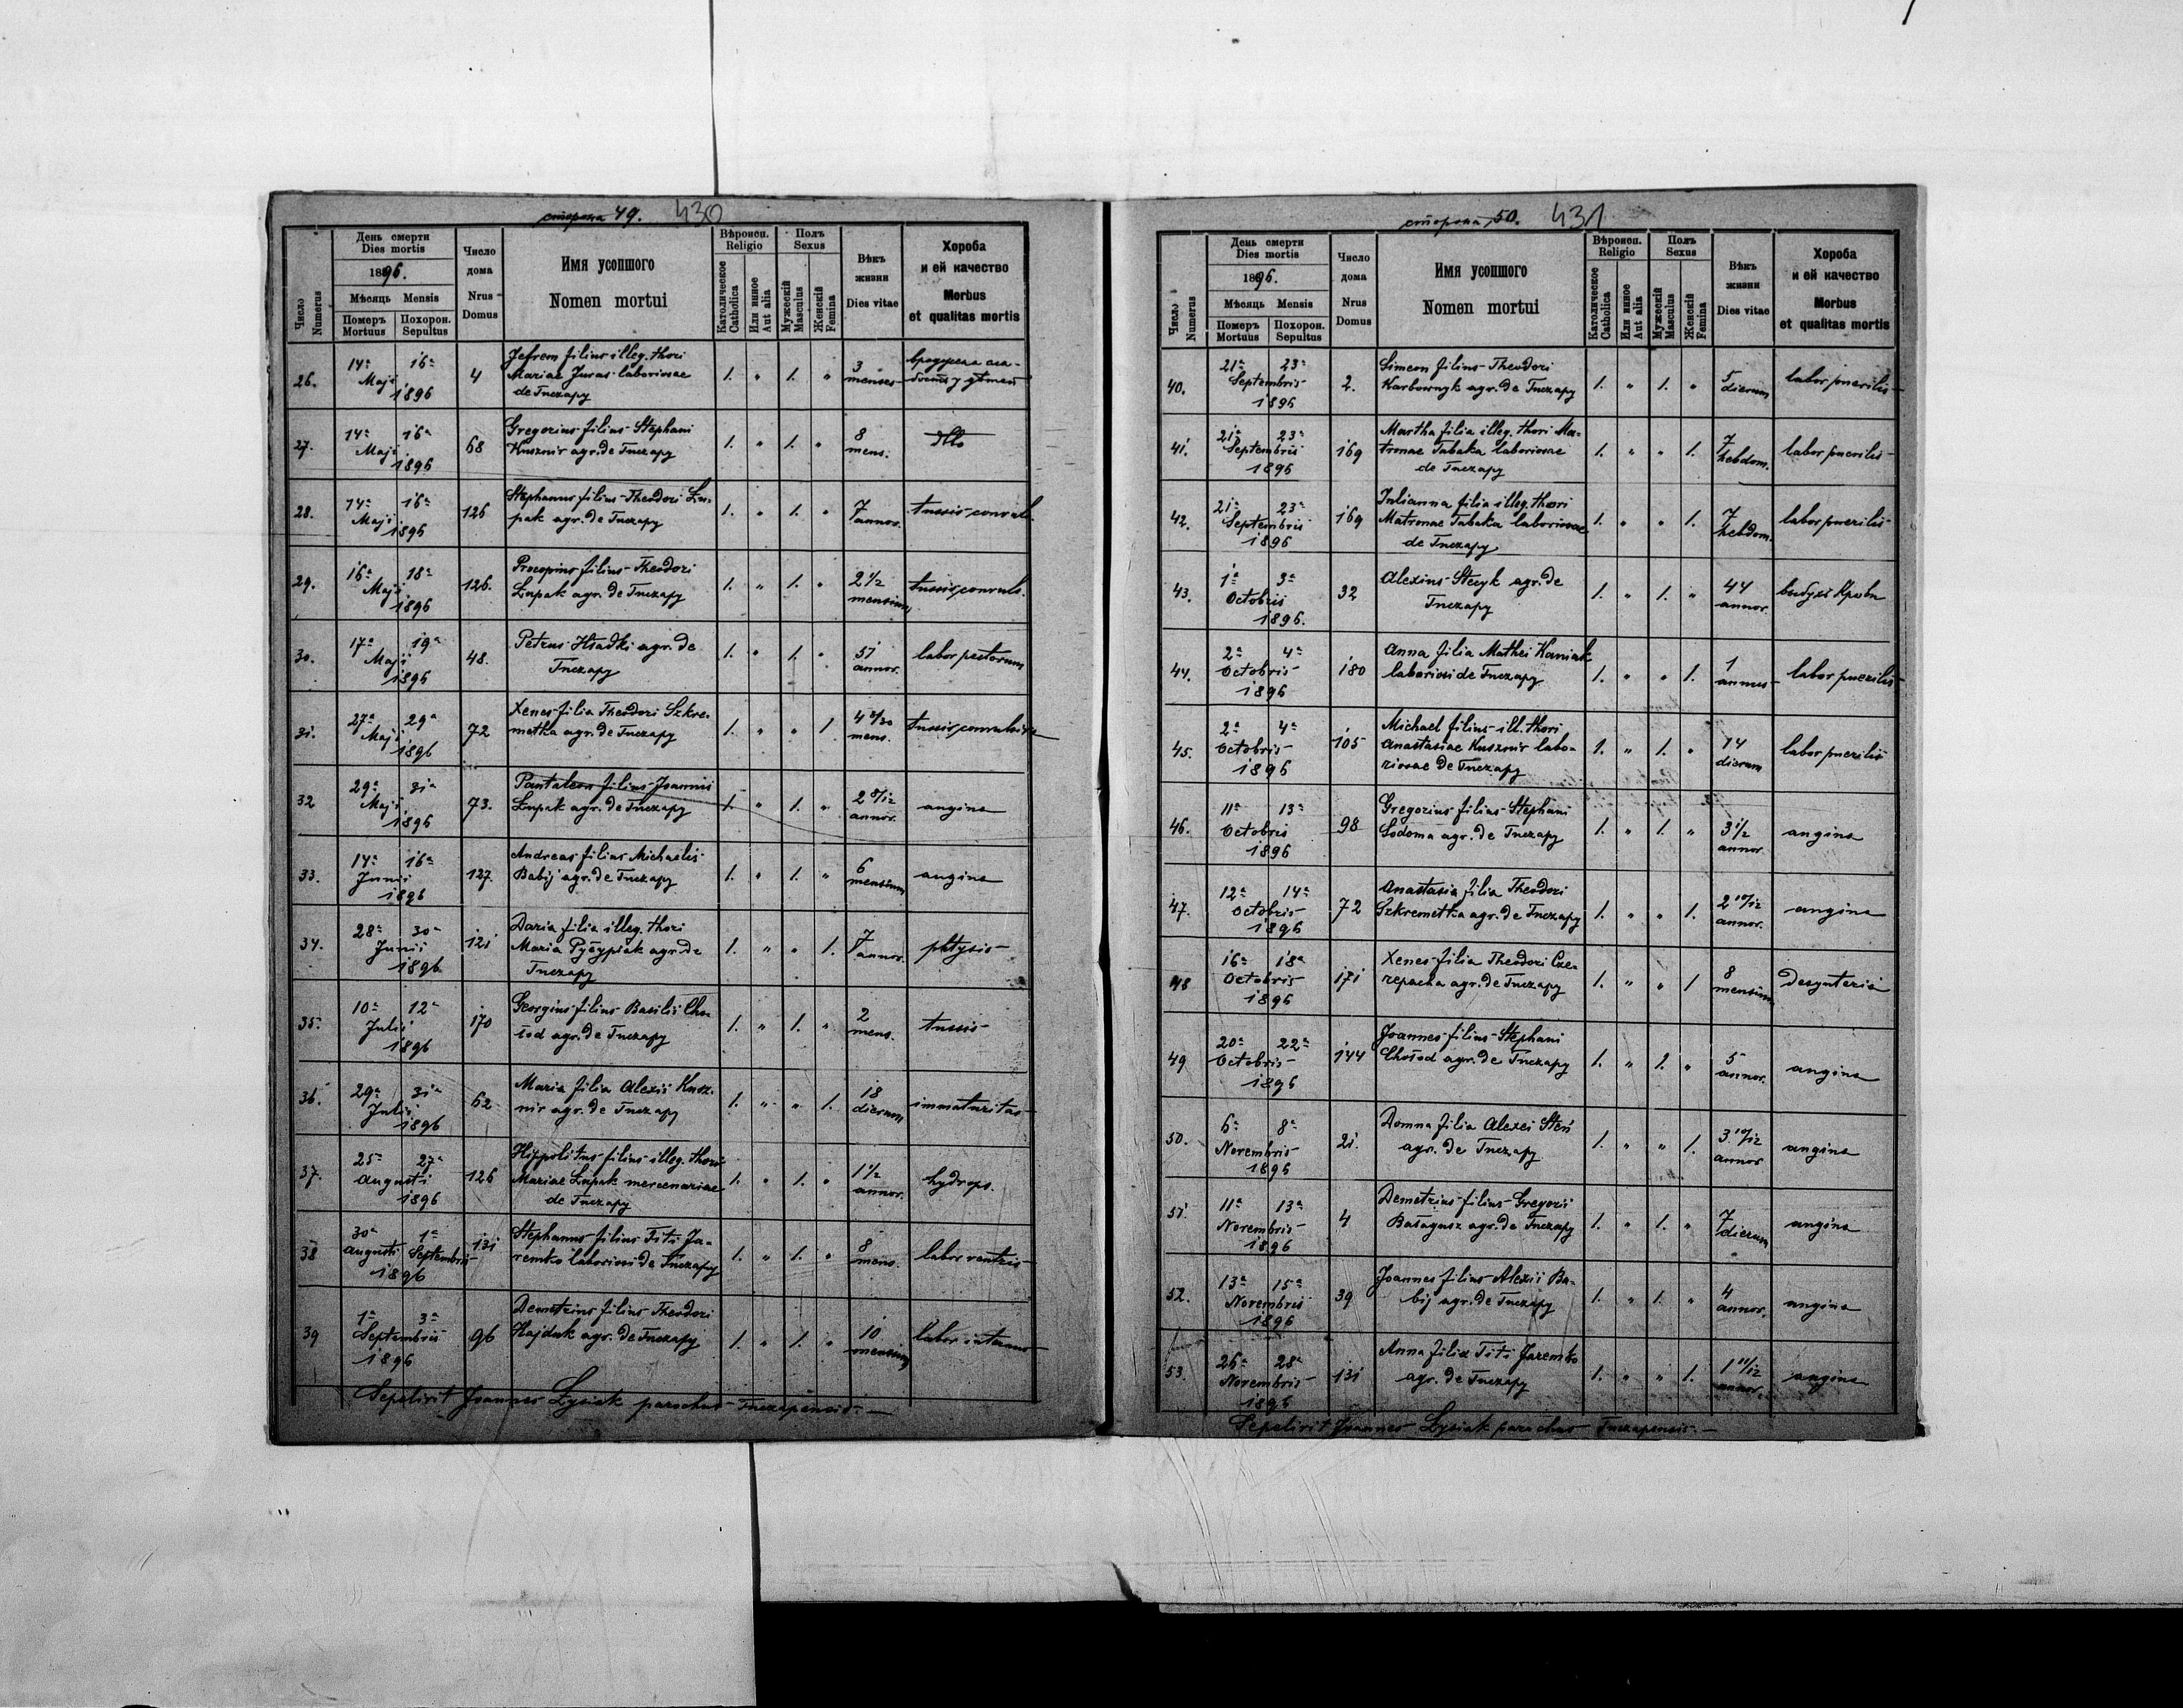 сторона 49. 430
День смерти
Dies mortis
1896.
Мѣсяць Mensis
Число
Numerus
Померъ
Mortuus
Похорон.
Sepultus
Число
дома
Nrus
Domus
Имя усопшого
Nomen mortui
Вѣроисп.
Religio
Католическое
Catholica
Или инное
Aut alia
Полъ
Sexus
Мужескій
Masculus
Женскій
Femina
Вѣкъ
жизни
Dies vitae
Хороба
и ей качество
Morbus
et qualitas mortis
26. 14a 16a Maji 1896 4 Jefrem filius illeg. thori
Mariae Juras laboriosae
de Tuczapy 1. " 1. " 3 menses
27. 14a 16a Maji 1896 68 Gregorius filius Stephani
Kusznir agr. de Tuczapy 1. " 1. " 8 mens. dtto
28. 14a 16a Maji 1896 126 Stephanus filius Theodori Łu-
pak agr. de Tuczapy 1. " 1. " 7 annor. tussis convuls.
29. 16a 18a Maji 1896 126. Procopius filius Theodori
Łupak agr. de Tuczapy 1. " 1. " 2 1/2 mensium tussis convuls.
30. 17a 19a Maji 1896 48. Petrus Hladki agr. de
Tuczapy 1. " 1. " 51 annor. labor pectorum
31. 27a 29a Maji 1896 72 Xenes filia Theodori Szkre-
metka agr. de Tuczapy 1. " " 1 4 mens. tussis convulsiva
32 29a 31a Maji 1896 73. Pantaleon filius Joannis
Łupak agr. de Tuczapy 1. " 1. " 2 8/12 annor. angina
33. 14a 16a Junii 1896 127. Andreas filius Michaelis
Babij agr. de Tuczapy 1. " 1. " 6 mensium angina
34. 28a 30a Junii 1896 121 Daria filia illeg. thori
Maria agr. de
Tuczapy 1. " " 1. 7 annor. phtysis
35. 10a 12a Julii 1896 170 Georgius filius Basilii Cho-
łod agr. de Tuczapy 1. " 1. " 2 mens. tussis
36. 29a 31a Julii 1896 62 Maria filia Alexii Kusz-
nir agr. de Tuczapy 1. " " 1. 18 dierum immaturitas
37. 25a 27a Augusti 1896 126 Hippolitus filius illeg. thori
Mariae Łupak mercenariae
de Tuczapy 1. " 1. " 1 1/2 annor. hydrops.
38 30a Augusti 1a Septembris 1896 131 Stephanus filius Titi Ja-
remko laboriosi de Tuczapy 1. " 1. " 8 mens. labor ventris
39 1a 3a Septembris 1896 96 Demetrius filius Theodori
Hajduk agr. de Tuczapy 1. " 1. " 10 mensium labor internus
Sepelivit Joannes Łysiak parochus Tuczapensis.
сторона 50. 431
День смерти
Dies mortis
1896.
Мѣсяць Mensis
Число
Numerus
Померъ
Mortuus
Похорон.
Sepultus
Число
дома
Nrus
Domus
Имя усопшого
Nomen mortui
Вѣроисп.
Religio
Католическое
Catholica
Или инное
Aut alia
Полъ
Sexus
Мужескій
Masculus
Женскій
Femina
Вѣкъ
жизни
Dies vitae
Хороба
и ей качество
Morbus
et qualitas mortis
40. 21a 23a Septembris 1896 2. Simeon filius Theodori
Karbownyk agr. de Tuczapy 1. " 1. " 5 dierum labor puerilis
41. 21a 23a Septembris 1896 169 Martha filia illeg. thori Ma-
tronae Tabaka laboriosae
de Tuczapy 1. " " 1. 7 hebdom. labor puerilis
42. 21a 23a Septembris 1896 169 Julianna filia illeg. thori
Matronae Tabaka laboriosae
de Tuczapy 1. " " 1. 7 hebdom. labor puerilis
43. 1a 3a Octobris 1896. 32 Alexius Stecyk agr. de
Tuczapy 1. " 1. " 44 annor. выбухъ Крови
44. 2a 4a Octobris 1896 180 Anna filia Mathei Kaniak
laboriosi de Tuczapy 1. " " 1. 1 annus labor puerilis
45. 2a 4a Octobris 1896 105 Michael filius ill. thori
Anastasiae Kusznir labo-
riosae de Tuczapy 1. " 1. " 14 dierum labor puerilis
46. 11a 13a Octobris 1896 98 Gregorius filius Stephani
Sodoma agr. de Tuczapy 1. " 1. " 3 1/2 annor. angina
47. 12a 14a Octobris 1896 72 Anastasia filia Theodori
Szkremetka agr. de Tuczapy 1. " " 1. 2 10/12 annor. angina
48 16a 18a Octobris 1896 171 Xenes filia Theodori Cze-
repacha agr. de Tuczapy 1. " " 1 8 mensium desynteria
49 20a 22a Octobris 1896 144 Joannes filius Stephani
Chołod agr. de Tuczapy 1. " 1. " 5 annor. angina
50. 6a 8a Novembris 1896 21. Domna filia Alexei Steń
agr. de Tuczapy 1. " " 1. 3 10/12 annor angina
51. 11a 13a Novembris 1896 4 Demetrius filius Gregorii
Bałagusz agr. de Tuczapy 1. " 1. " 7 dierum angina
52. 13a 15a Novembris 1896 39 Joannes filius Alexii Ba-
bij agr. de Tuczapy 1. " 1. " 4 annor. angina
53. 26a 28a Novembris 1896 131 Anna filia Titi Jaremko
agr. de Tuczapy 1. " " 1. 1 11/12 annor. angina
Sepelivit Joannes Łysiak parochus Tuczapensis.